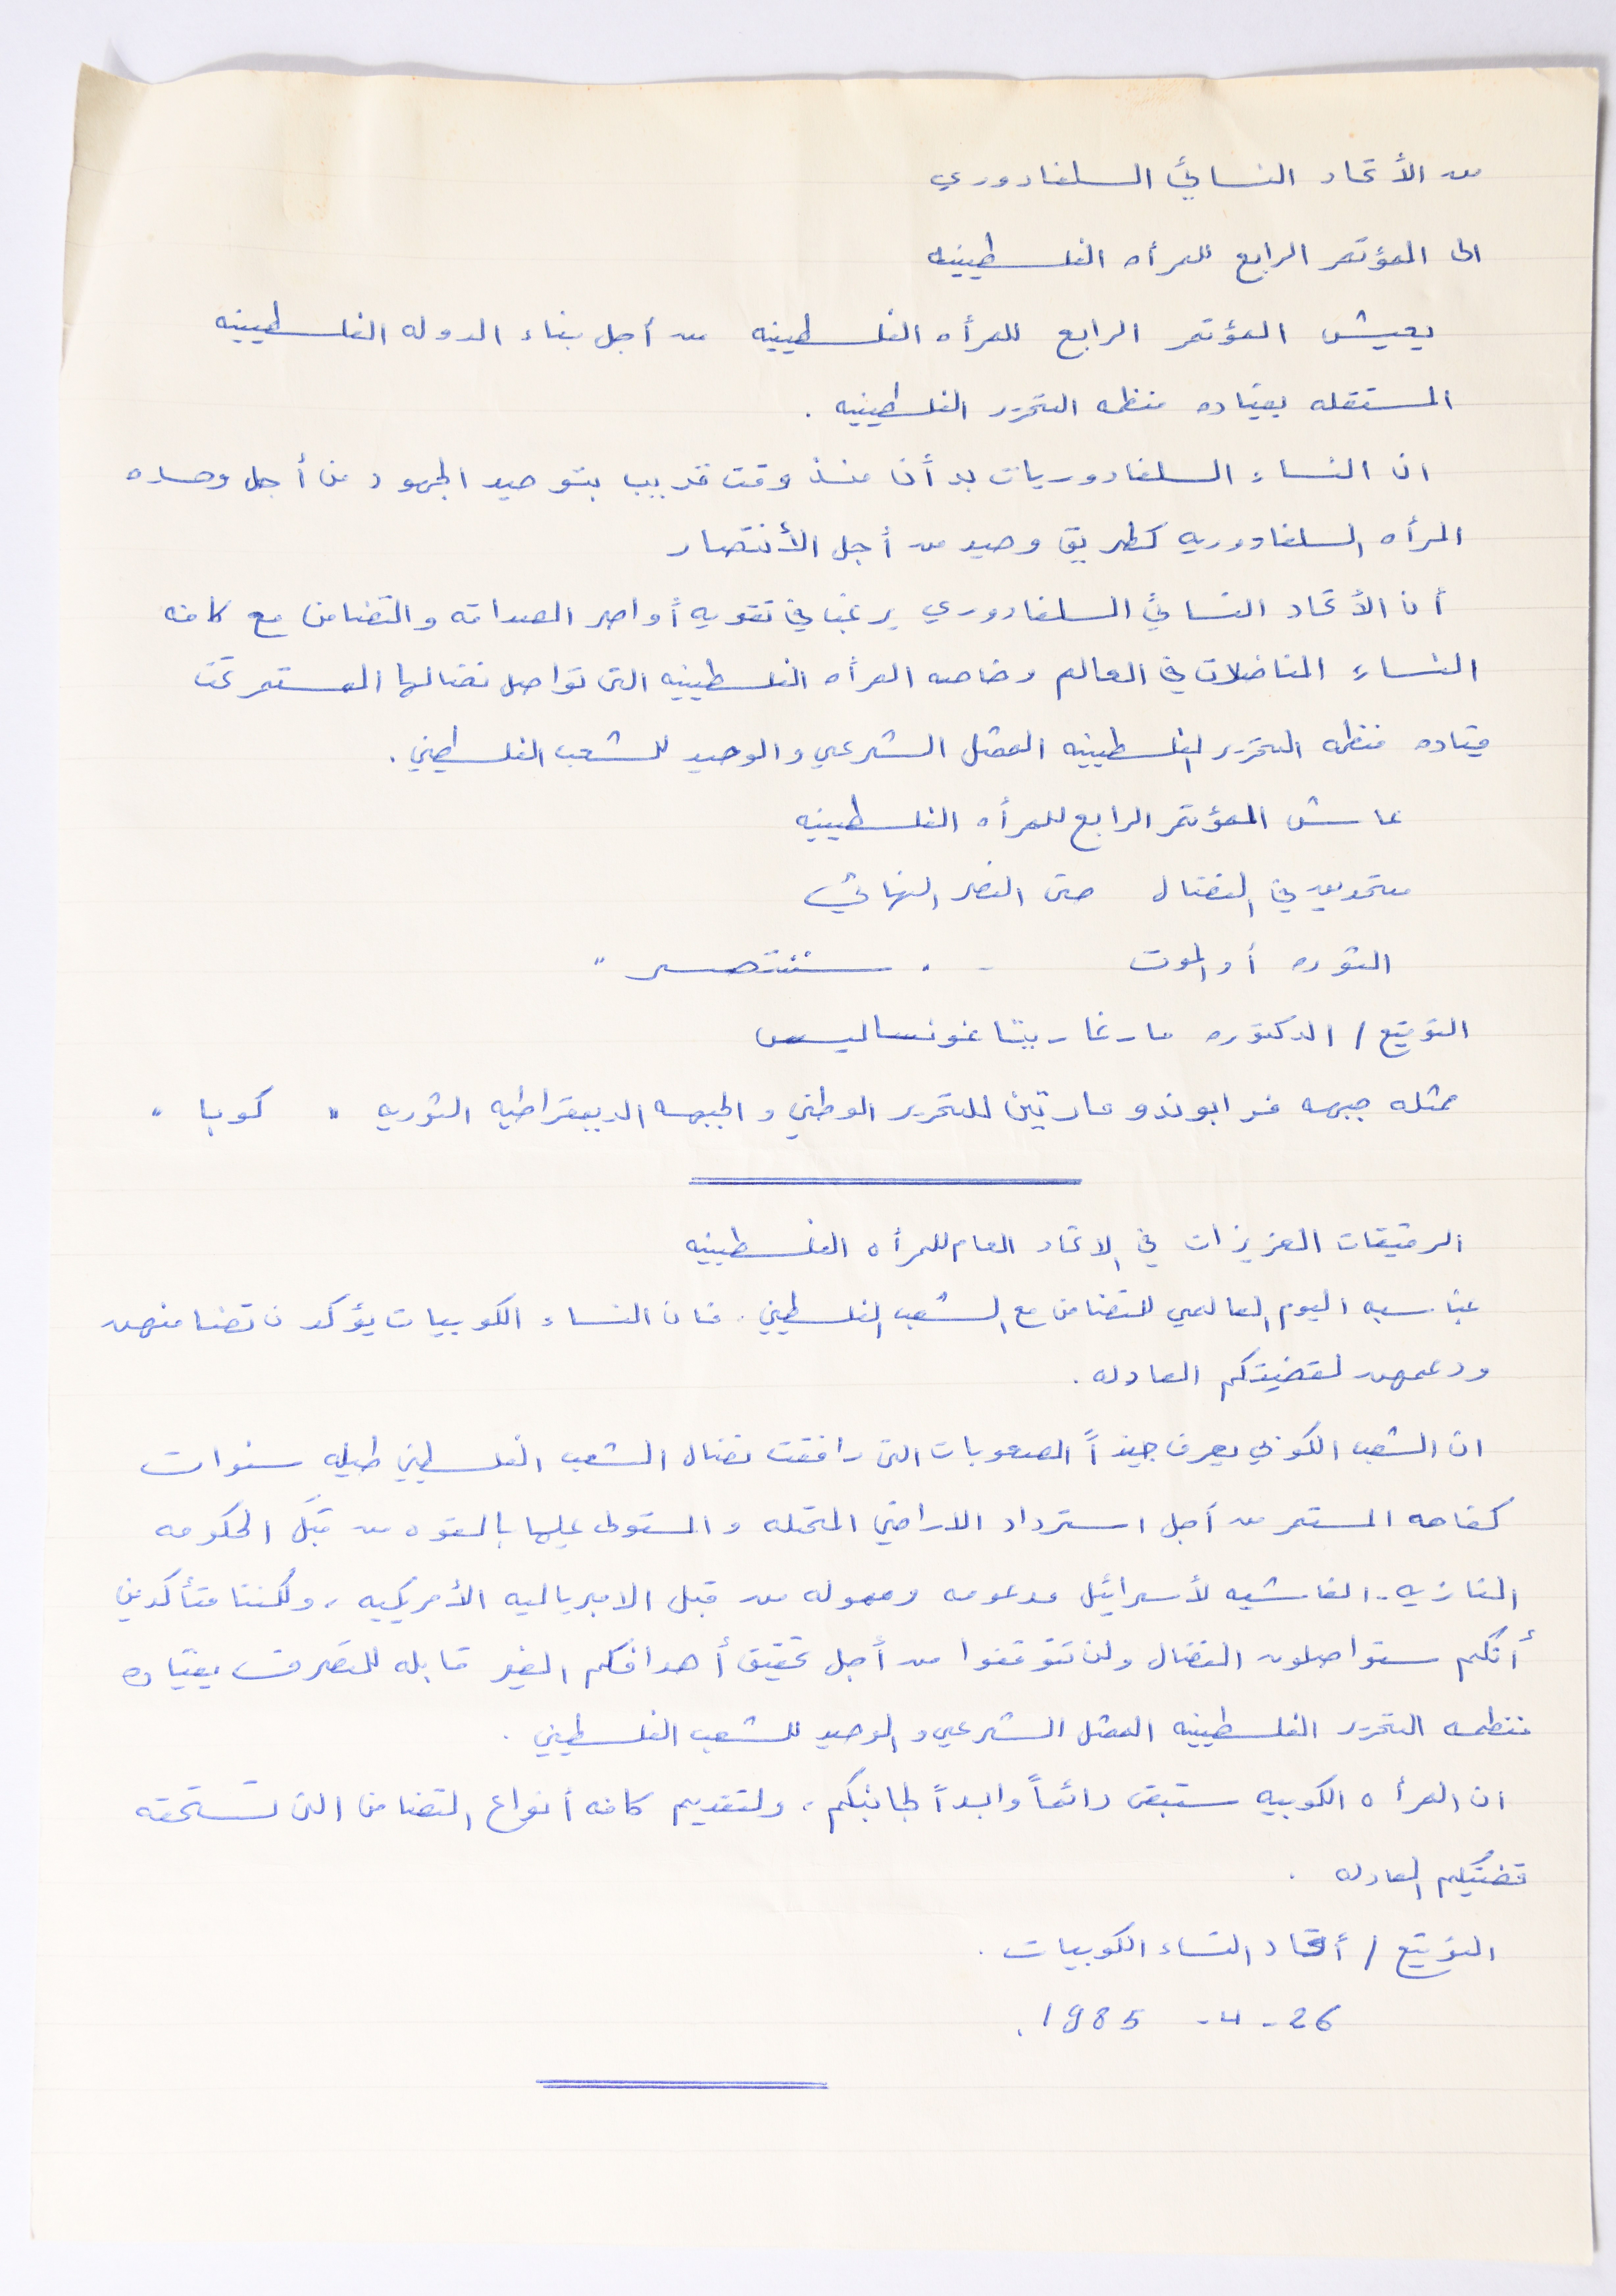 من الأتحاد النسائي السلفادوري
الى المؤتمر الرابع للمرأه الفلسطينيه
يعيش المؤتمر الرابع للمرأه الفلسطينيه من أجل بناء الدوله الفلسطينيه
المستقله بقياده منظمه التحرير الفلسطينيه .
ان النساء السلفادوريات بدأن منذ وقت قريب بتوحيد الجهود من أجل وحده
المرأه السلفادوريه كطريق وحيد من أجل الأنتصار
أن الأتحاد النسائي السلفادوري يرغب في تقويه أواصر الصداقه والتضامن مع كافه
النساء المناضلات في العالم وخاصه المرأه الفلسطينيه التى تواصل نضالها المستمر تحت
قياده منظمه التحرير الفلسطينيه الممثل الشرعي والوحيد للشعب الفلسطيني .
عاش المؤتمر الرابع للمرأه الفلسطينيه
متحدين في النضال حتى النصر النهائي
الثوره أو الموت - . سننتصر "
التوقيع / الدكتوره مارغاريتا غونساليس
ممثله جبهه فرابوندو مارتين للتحرير الوطني والجبهه الديمقراطيه الثوريه " كوبا "
الرفيقات العزيزات في الاتحاد العام للمرأه الفلسطينيه
بمناسبه اليوم العالمي للتضامن مع الشعب الفلسطيني . فان النساء الكوبيات يؤكدن تضامنهن
ودعمهن لقضيتكم العادله .
ان الشعب الكوبي يعرف جيداً الصعوبات التى رافقت نضال الشعب الفلسطيني طيله سنوات
كفاحه المستمر من أجل استرداد الاراضي المحتله والمستولى عليها بالقوه من قبل الحكومه
النازيه - الفاشيه لأسرائيل مدعومه وممولة من قبل الامبرياليه الأمريكيه ، ولكننا متأكدين
أنكم ستواصلون النضال ولن تتوقفوا من أجل تحقيق أهدافكم الغير قابله للتصرف بقياده
منظمه التحرير الفلسطينيه الممثل الشرعي والوحيد للشعب الفلسطيني .
ان المرأه الكوبيه ستبقى دائماً وابداً لجانبكم ، ولتقديم كافه أنواع التضامن التى تستحقه
قضيتكم العادله .
التوقيع / أتحاد النساء الكوبيات .
26 - 4 - 1985 .